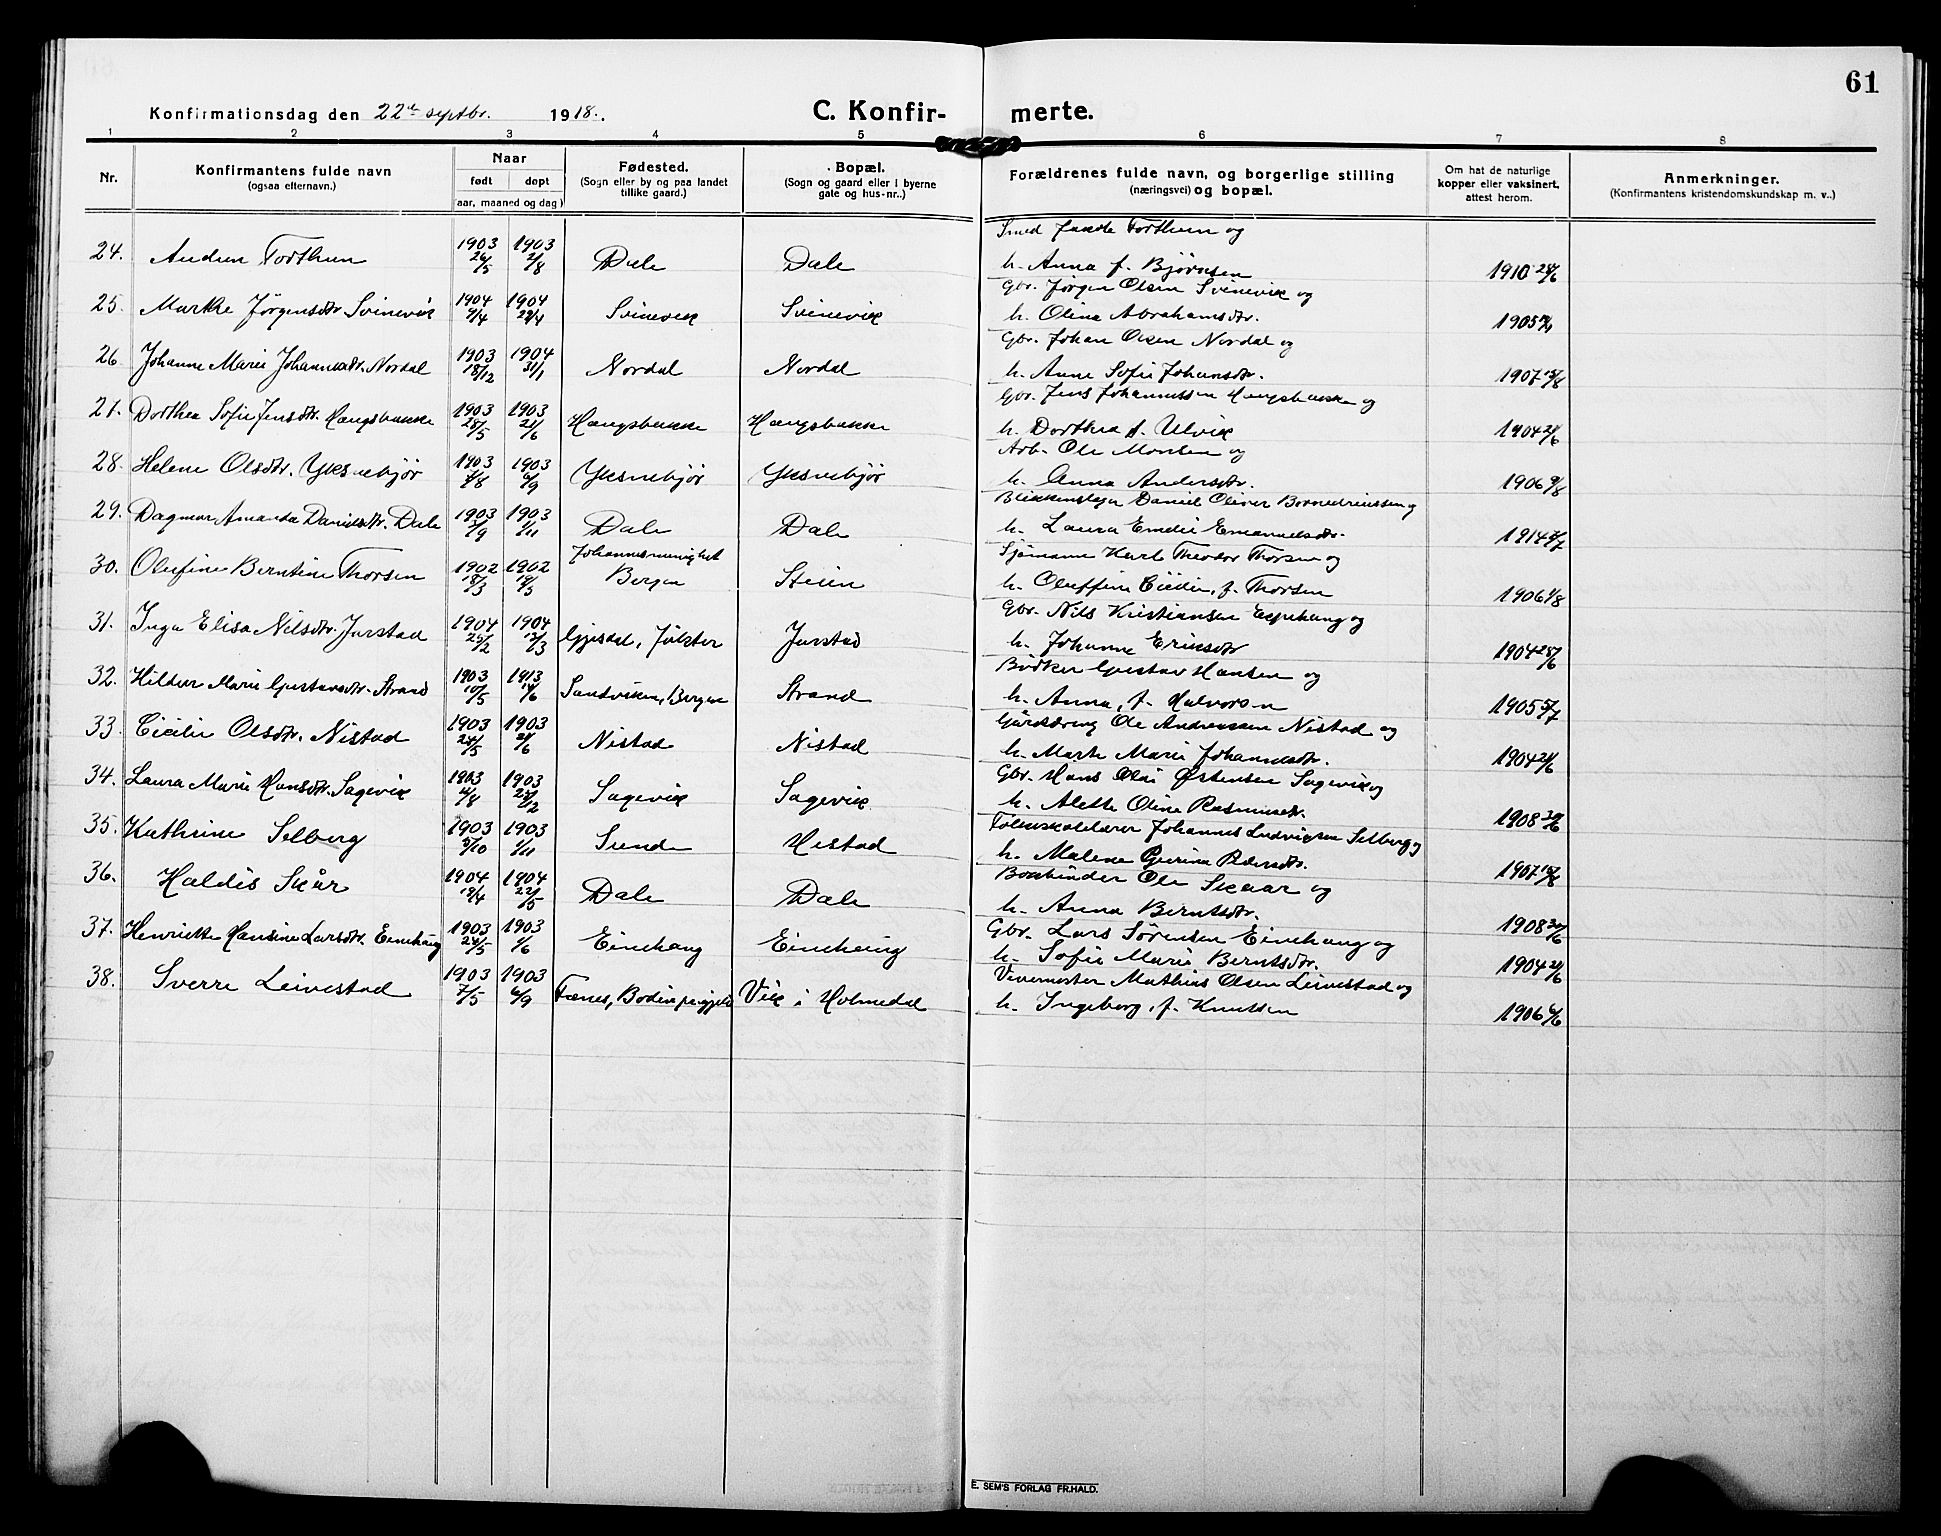 61
Konfirmationsdag den 22de septbr. 1918.
C. Konfirmerte.
1 2 3 4 5 6 7 8
Nr.
Konfirmantens fulde navn
(ogsaa efternavn.)
Naar
født døpt
(aar, maaned og dag)
Fødested.
(Sogn eller by og paa landet
tillike gaard.)
Bopæl.
(Sogn og gaard eller i byerne
gate og hus-nr..)
Forældrenes fulde navn, og borgerlige stilling
(næringsvei) og bopæl.
Om hat de naturlige
kopper eller vaksinert,
attest herom.
Anmerkninger.
(Konfirmantens kristendomskundskap m. v..)
Smed Forthun og
24. Forthun 1903 26/5 1903 2/8 Dale Dale h. Anna f. Bjørnsen 1910
Gbr. Jørgen Olsen Svinevik og
25. Marthe Jørgensdtr. Svinevik 1904 9/4 1904 24/4 Svinevik Svinevik h. Olina Abrahamsdtr. 1905
Gbr. Johan Olsen Nordal og
26. Johanne Marie Nordal 1903 18/12 1904 31/1 Nordal Nordal h. Anne Sofie 1907 13/8
Gbr. Jens Johannessen og
27. Dorthea Sofie Jensdtr. Haugsbakke 1903 28/5 1903 21/6 Haugsbakke Haugsbakke h. Dorthea f. Ulvik 1904 21/6
Arb. Ole og
28. Helene Olsdtr. Yksnebjør 1903 7/8 1903 6/9 Yksnebjør Yksnebjør h. Anna Andersdtr. 1906 9/8
Daniel Oliver og
29. Dagmar Amanda Danielsdtr. Dale 1903 1903 1/11 Dale Dale h. Laura Emelie Emanuelsdtr. 1914
Johannesmenighet
Sjømann Karl Theodor Thorsen og
30. Olufine Berntine Thorsen 1902 18/3 1902 19/5 Bergen Steien h. f. Thorsen 1906 1/8
Gbr. Nils Kristiansen Espehaug og
31. Inga Elisa Nilsdtr. Jarstad 1904 25/2 1904 13/3 Gjesdal, Jølster Jarstad h. Johanne Eriksdtr 1904
Bødker Gustav Hansen og
32. Marie Gustavsdtr. Strand 1903 10/5 1913 Sandviken, Bergen Strand h. Anna, f. Halvorsen 1905 5/7
Ole Andreassen Nistad og
33. Cicilie Olsdtr. Nistad 1903 24/5 1903 21/6 Nistad Nistad h. Marthe Marie 1904 21/6
Gbr. Hans Olai Østensen Sagevik og
34. Laura Marie Hansdtr. Sagevik 1903 1903 Sagevik Sagevik h. Alette Oline Rasmusdtr. 1908 20/6
Folkeskolelærer Johannes Ludvigsen Selberg og
35. Kathrine Selberg 1903 5/10 1903 1/11 Sunde Hestad h. Malene Pedersdtr. 1907 13/8
Bokbinder Ole Skaar og
36. Haldis Skår 1904 19/4 1904 22/5 Dale Dale h. Anna Berntsdtr. 1908 20/6
Gbr. Lars Sørensen Einehaug og
37. Henriette Hansine Larsdtr. Einehaug 1903 24/5 1903 1/6 Einehaug Einehaug h. Sofie Marie Berntsdtr. 1904 21/6
Mathias Olsen Leivestad og
38. Sverre Leivestad 1903 7/5 1903 6/9 Bodin prgjeld Vik i Holmedal h. Ingeborg, f. Knutsen 1906
E. SEM'S FORLAG FR.HALD.